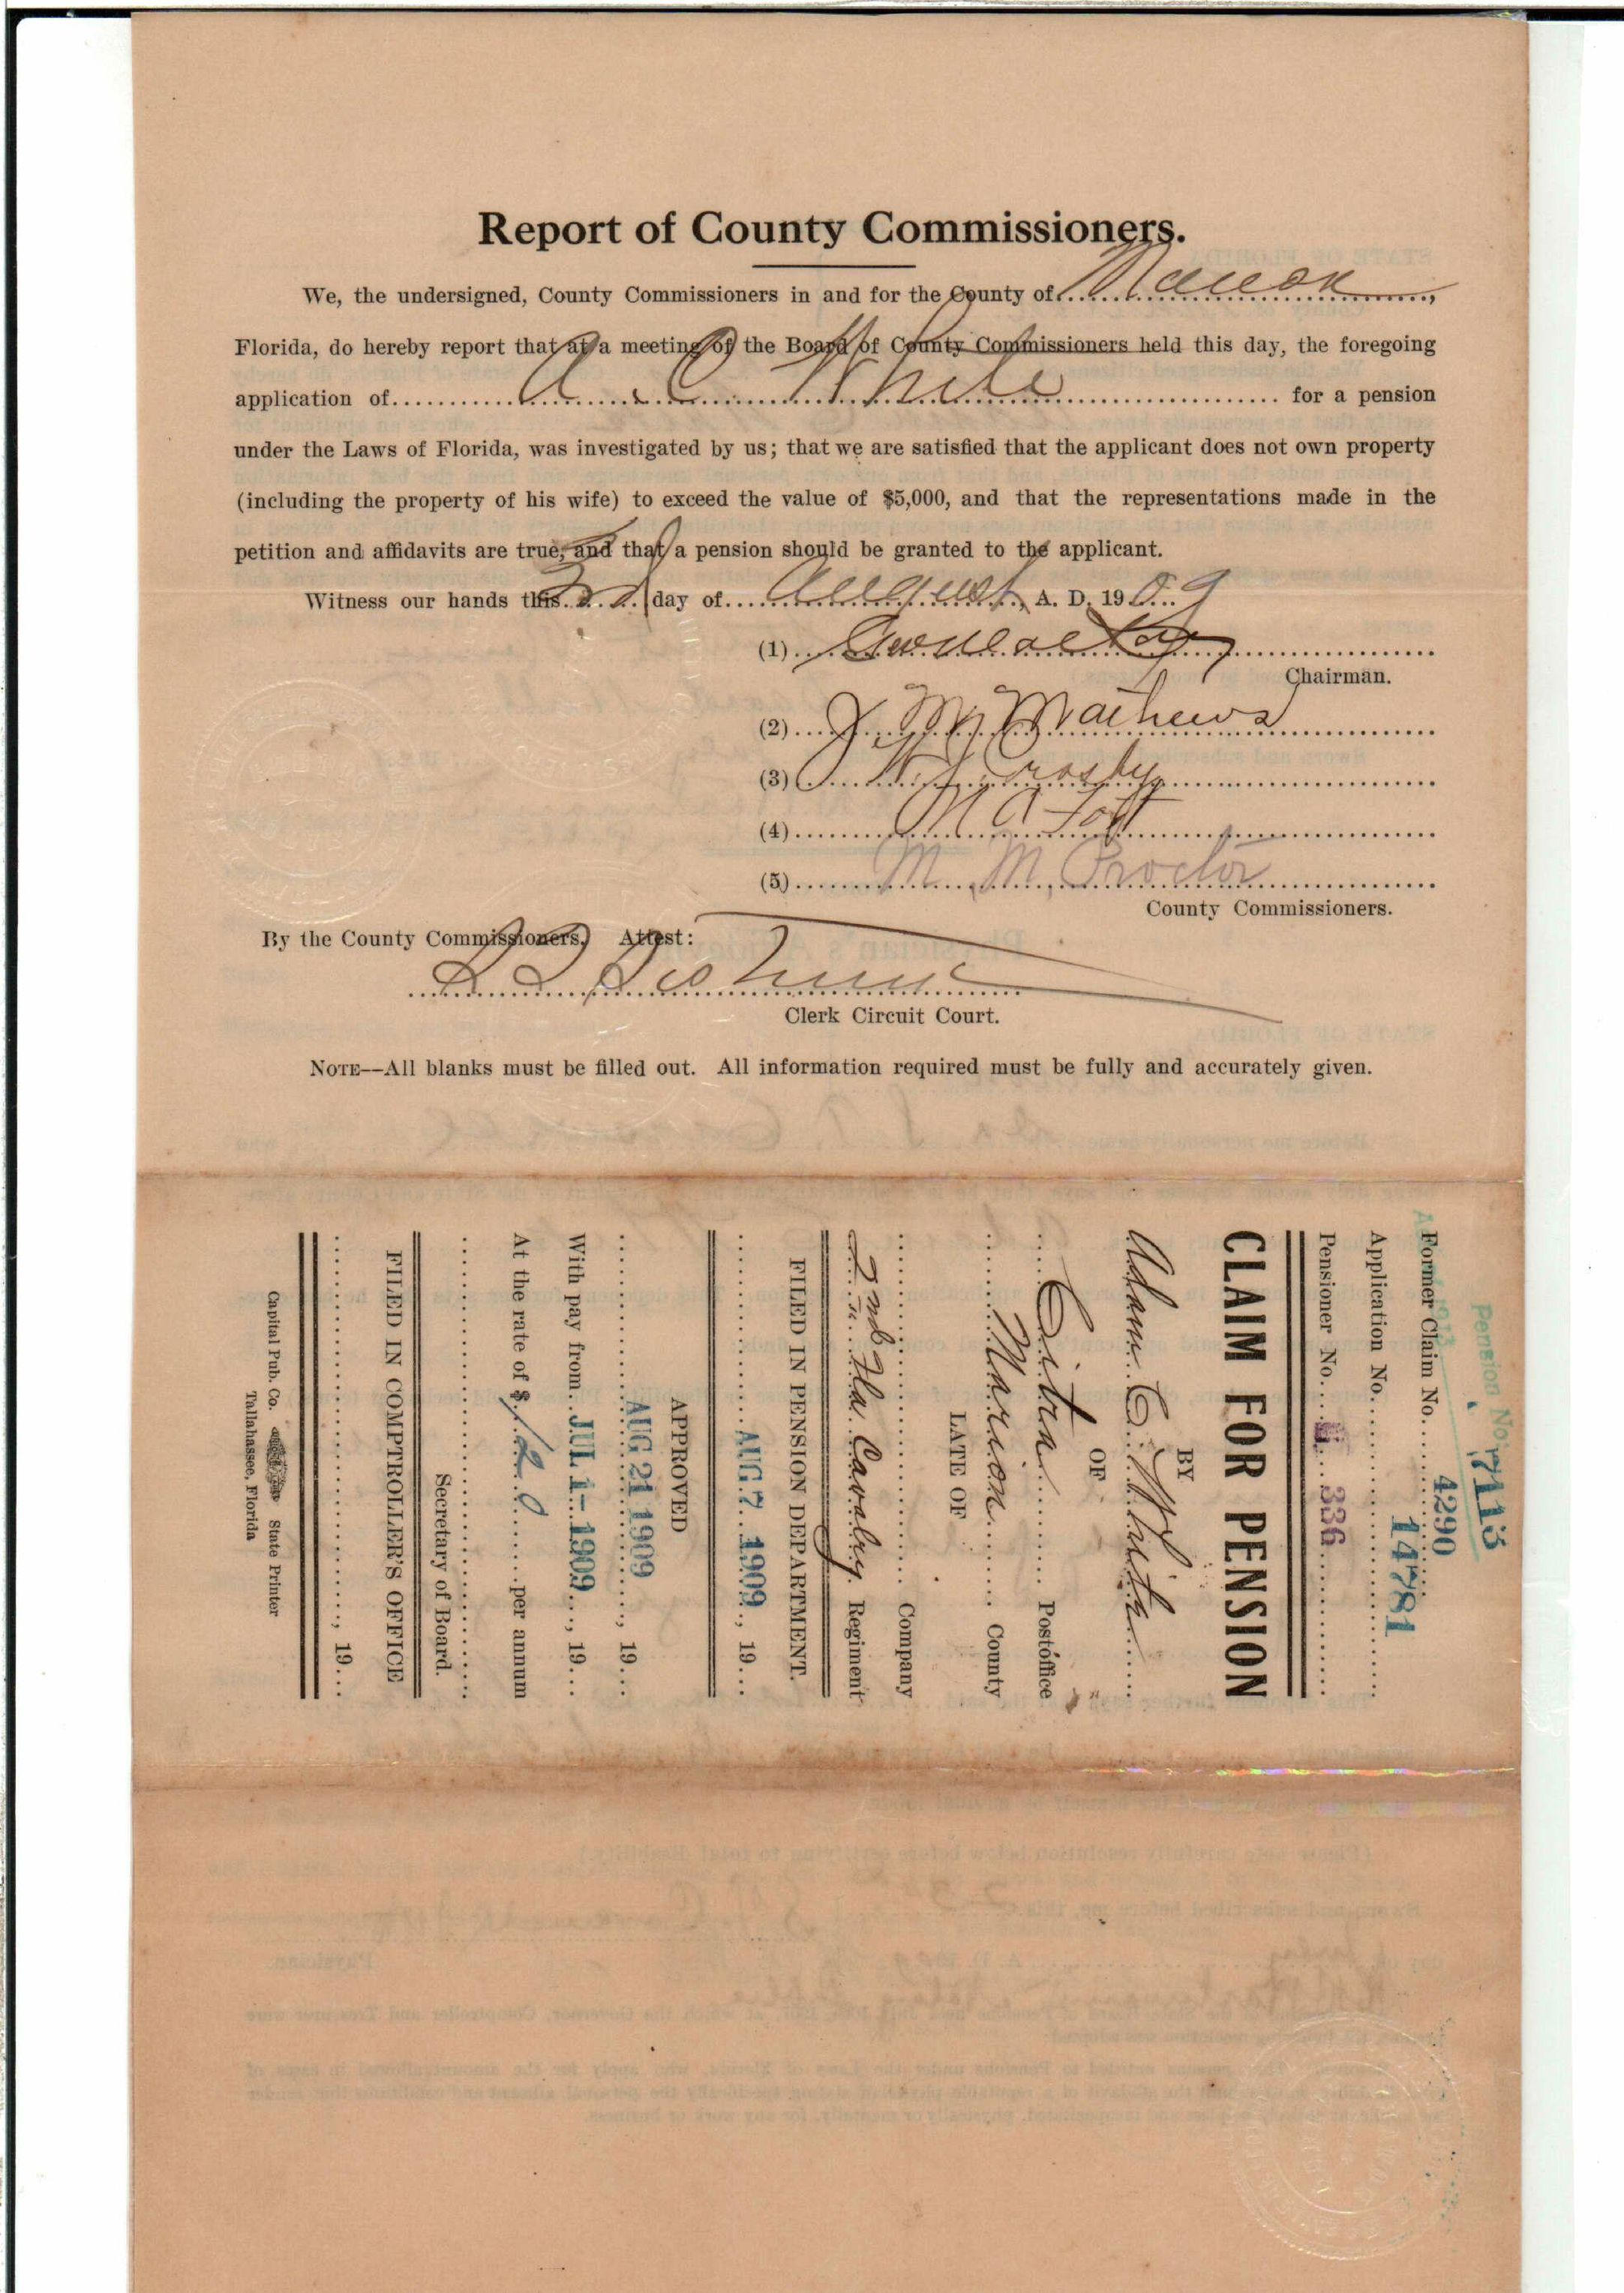 Report of County Commissioners.
We, the undersigned, County Commissioners in and for the County of Marion,
Florida, do hereby report that at a meeting of the Board of County Commissioners held this day, the foregoing
application of A. C. White for a pension
under the Laws of Florida, was investigated by us; that we are satisfied that the applicant does not own property
(including the property of his wife) to exceed the value of $5,000, and that the representations made in the
petition and affidavits are true, and that a pension should be granted to the applicant.
Witness our hands this 3d day of August, A. D. 1909
(1)
Chairman.
(2) J. M. Mathews
(3) W. J. Crosby
(4) N A Fort
(5) M. M. Proctor
County Commissioners.
By the County Commissioners. Attest:
Clerk Circuit Court.
NOTE—All blanks must be filled out. All information required must be fully and accurately given.
Pension No. 7113
Former Claim No. 4290
14781
Application No.
Pensioner No. 5 336
CLAIM FOR PENSION
BY
Adam C. White
OF
Citra Postoffice
Marion County
LATE OF
Company
2nd Fla. Cavalry. Regiment
FILED IN PENSION DEPARTMENT.
AUG 7 1909, 19
APPROVED
AUG 21 1909, 19
With pay from JUL 1-1909, 19
At the rate of $120 per annum
Secretary of Board.
FILED IN COMPTROLLER'S OFFICE
, 19
Capital Pub. Co. State Printer
Tallahassee, Florida